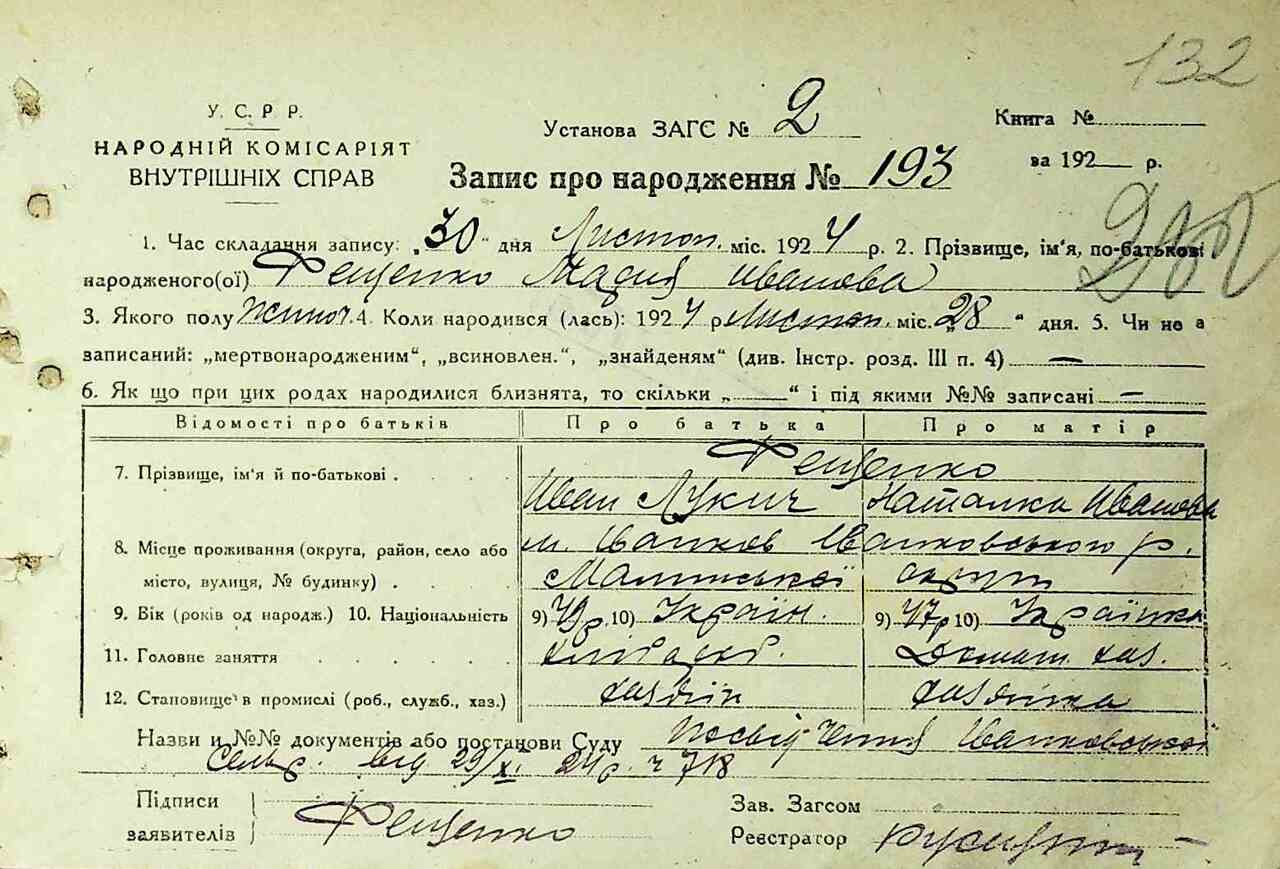 132
У. С. Р Р.
НАРОДНІЙ КОМІСАРІЯТ
ВНУТРІШНІХ СПРАВ
Установа ЗАГС № 2
Запис про народження № 193
Книга №
за 192 р.
200
1. Час складання запису: „30" дня Листоп. міс. 1924 р. 2. Прізвище, ім'я, по-батькові
народженого(ої) Фещенко Мария Иванова
3. Якого полу Жіноч. 4. Коли народився (лась): 1924 р Листоп. міс. „28" дня. 5. Чи не є
записаний: „мертвонародженим“, „всиновлен.“, „знайденям“ (див. Інстр. розд. III п. 4) —
6. Як що при цих родах народилися близнята, то скільки „ “ і під якими №№ записані —
Відомості про батьків Про батька Про матір
7. Прізвище, ім'я й по-батькові . Фещенко
Иван Лукич Наталка Иванова
8. Місце проживання (округа, район, село або м. Иванков Иванковського р.
місто, вулиця, № будинку) . Малинської округи
9. Вік (років од народж.) 10. Національність 9) 49р. 10) Україн. 9) 47р 10) Українка
11. Головне заняття хлібороб. Домашн. хаз.
12. Становище в промислі (роб., служб., хаз.) хазяїн хазяйка
Назви и №№ документів або постанови Суду Посвідчення Иванковської
Сельр. від 29/XI 24р. ч 718
Підписи
заявителів Фещенко
Зав. Загсом
Реєстратор